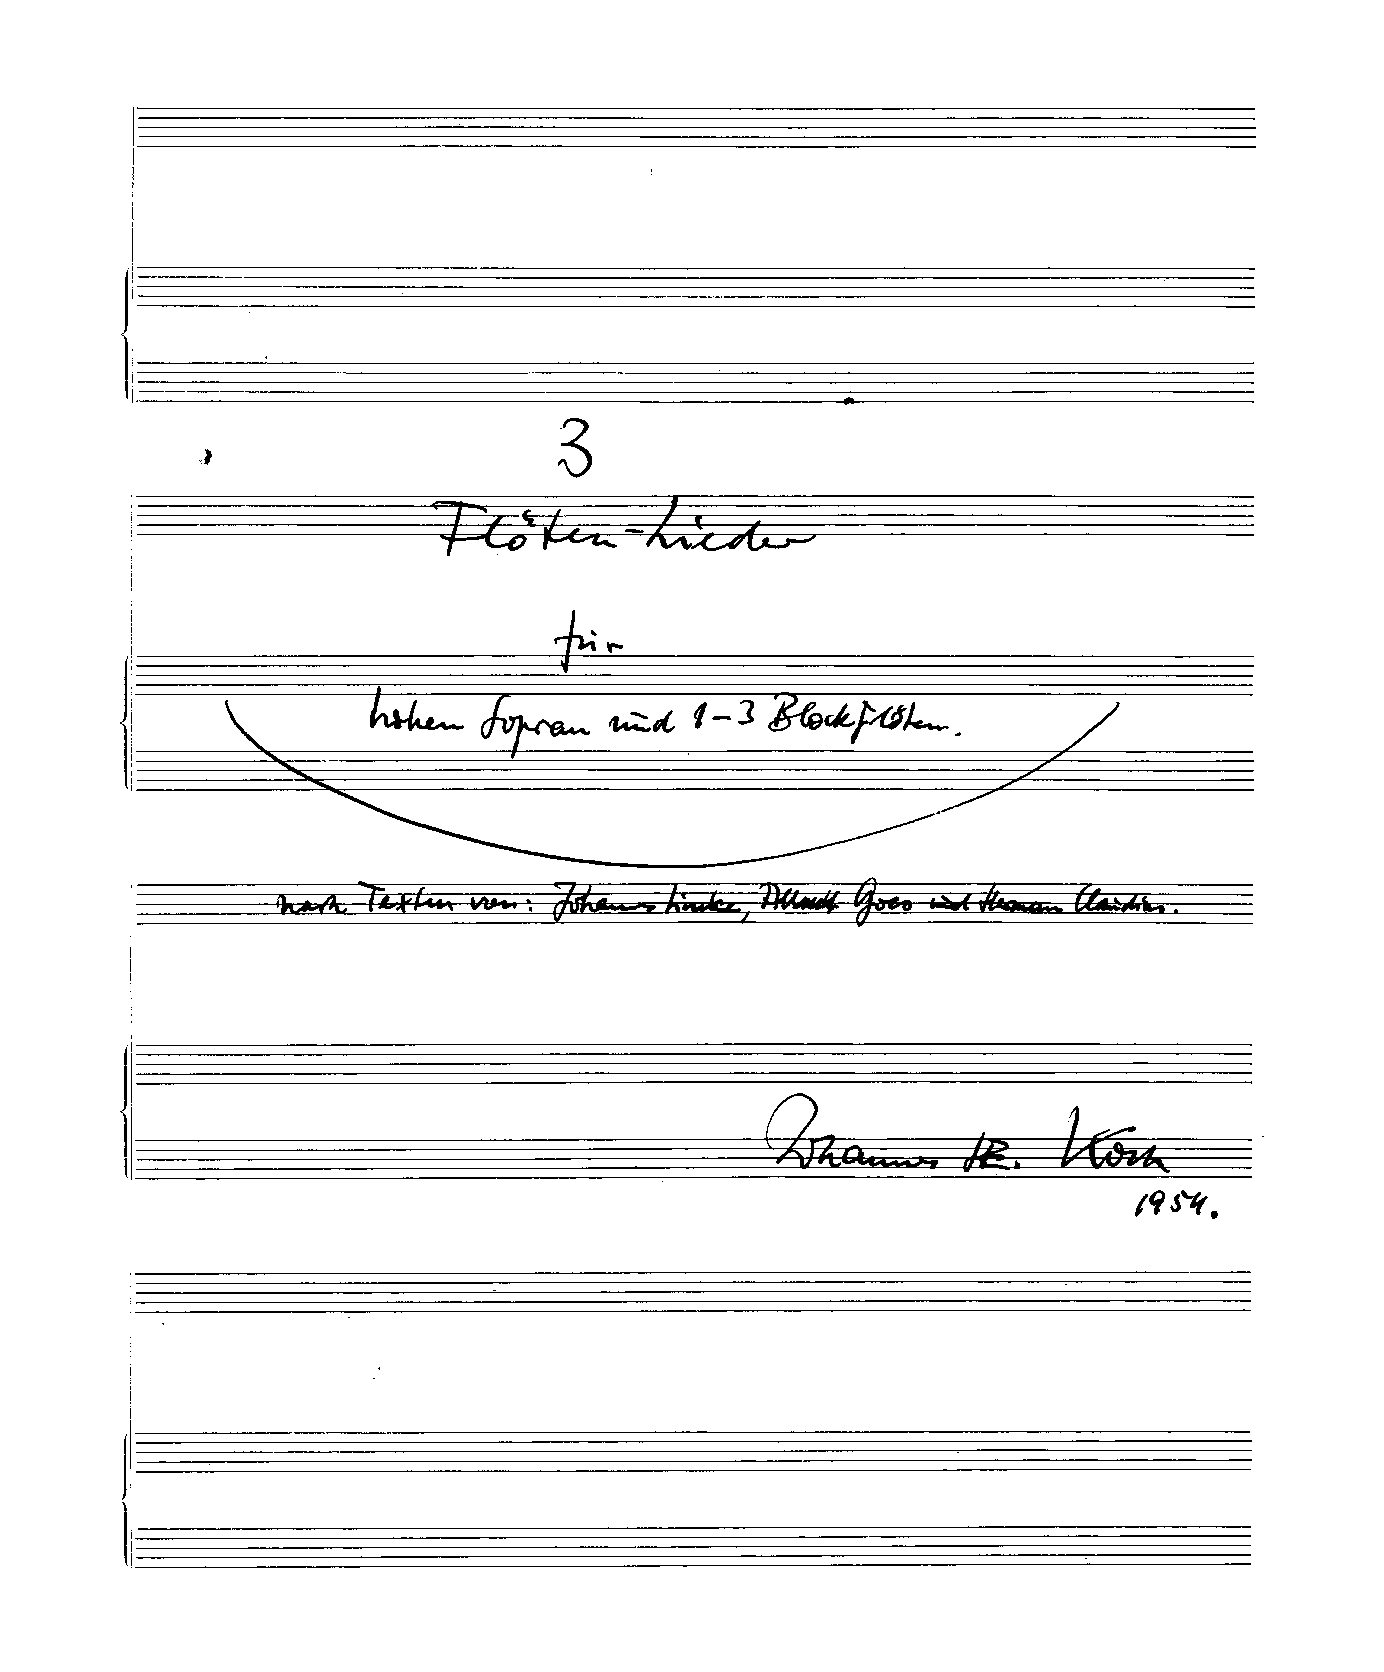 3
Flöten-Lieder
für
hohen Sopran und 1-3 Blockflöten.
nach Texten von: Johannes Lincke, Albrecht Goes und Herman Claudius.
Johannes H.E. Koch
1954.